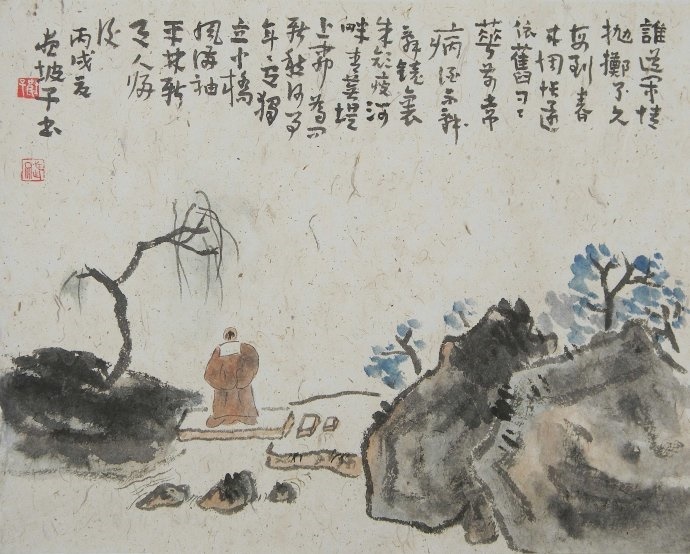 誰道闲情
抛擲了久
每到春
来惆怅還
依舊日日
華前常
病酒不辞
鏡裏
朱顔瘦河
畔青蕪堤
上柳為问
新愁何事
年年獨
立小橋
風满袖
平林新
月人歸
後
丙戌
坡子書